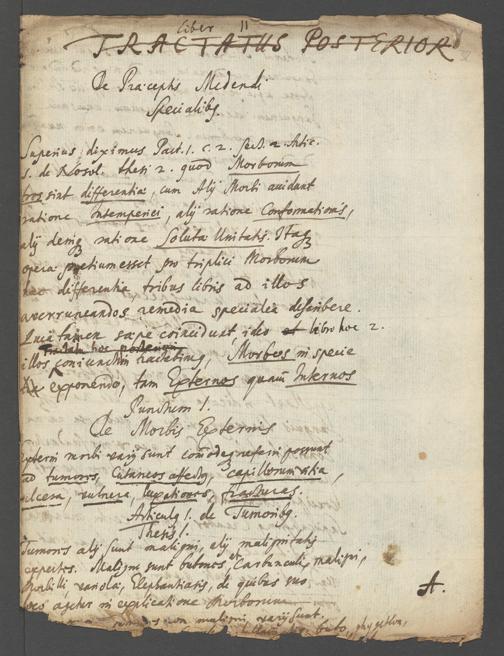 liber II
TRACTATUS POSTERIOR
De Præceptis Medendi
Specialibq.
Superius diximus Part. 1. c. 2. sect. 2. Artic.
5. de Nosol. thesi 2. quod Morborum
tres sint differentiæ, cum Alij Morbi accidant
ratione intemperiei, alij ratione Conformationis,
alij deniq ratione Soluta Unitatis. Itaq
operæ pretium esset pro triplici Morborum
hac differentia tribus libris ad illos
averruncandos remedia specialia describere.
Quia tamen sæpe coincidunt, ideo et libro hoc 2.
Tractatu hoc posteriori
illos conjunctim tractabimq, Morbos in specie
exponendo, tam Externos quam Internos
Punctum 1.
De Morbis Externis
Externi morbi varij sunt commodè referri possunt
ad tumores, Cutaneos affectq, capillorum vitia,
ulcera, vulnera, luxationes, fracturas.
Articulq 1. de Tumoribq.
Thesis 1.
Tumores alij sunt maligni, alij malignitatis
expertes. Maligni sunt bubones, et Carbunculi maligni,
Morbilli variolæ, Elephantiasis, de quibus suo
loco agetur in explicatione Morborum
tumores non maligni varij sunt
bubo, phygethlon,
A.